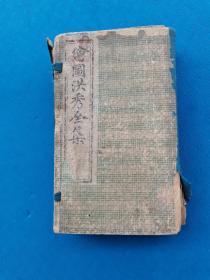 繪圖洪秀全集